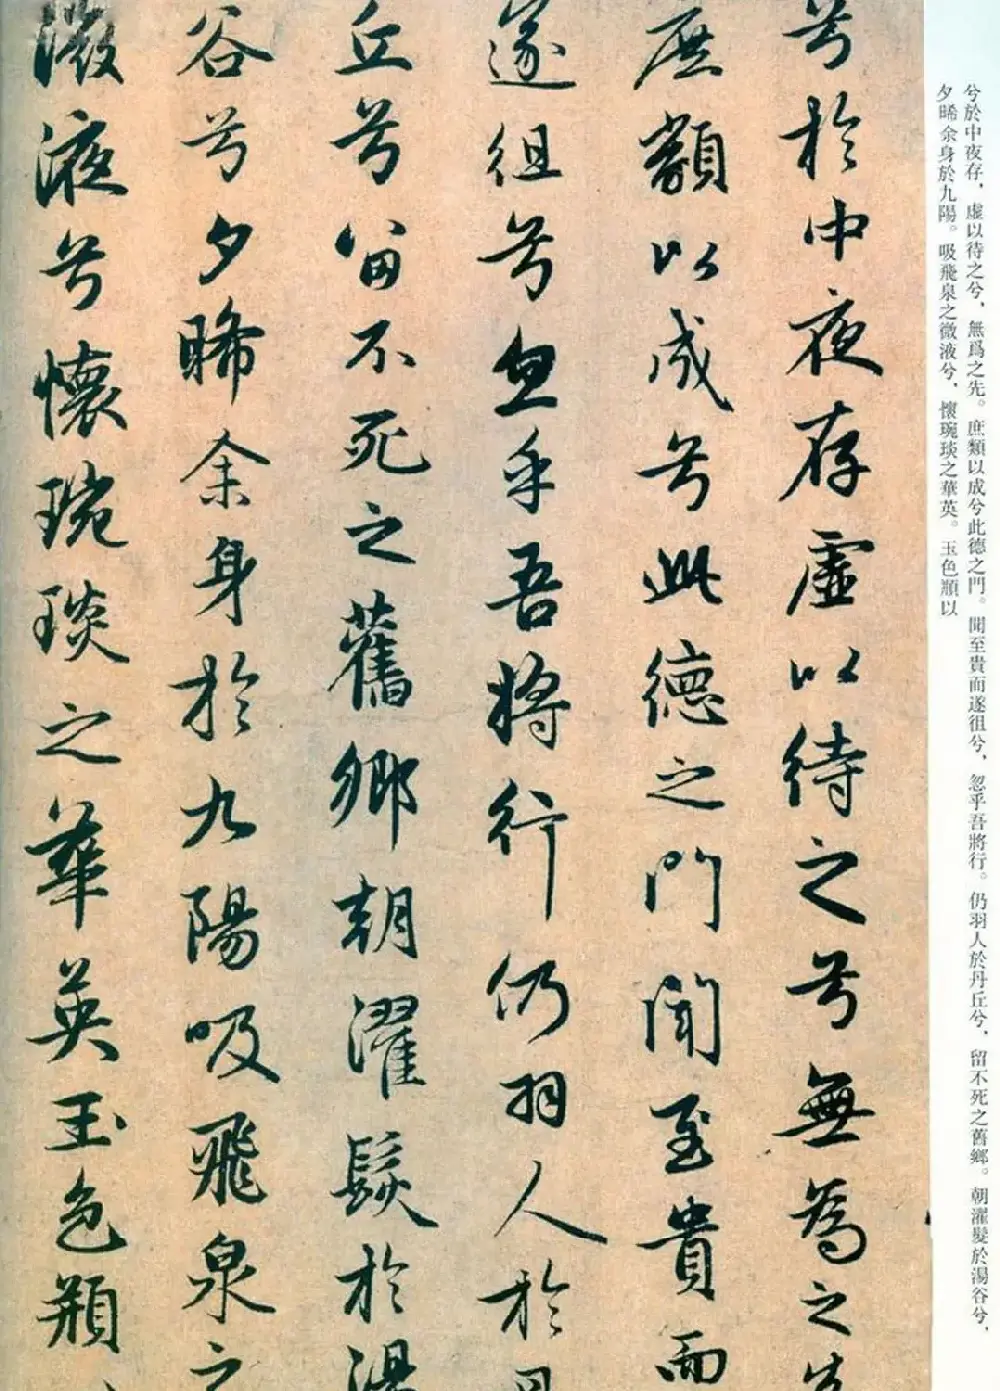 兮於中夜存，虛以待之兮，無爲之先。庶類以成兮此德之門。聞至貴而遂徂兮，忽乎吾將行。仍羽人於丹丘兮，留不死之舊鄉。朝濯髮於湯谷兮，
夕晞余身於九陽。吸飛泉之微液兮，懷琬琰之華英。玉色頩以
兮於中夜存虛以待之兮無為之先
庶類以成兮此德之門聞至貴而
遂徂兮忽乎吾將行仍羽人於丹
丘兮留不死之舊鄉朝濯髮於湯
谷兮夕晞余身於九陽吸飛泉之
微液兮懷琬琰之華英玉色頩